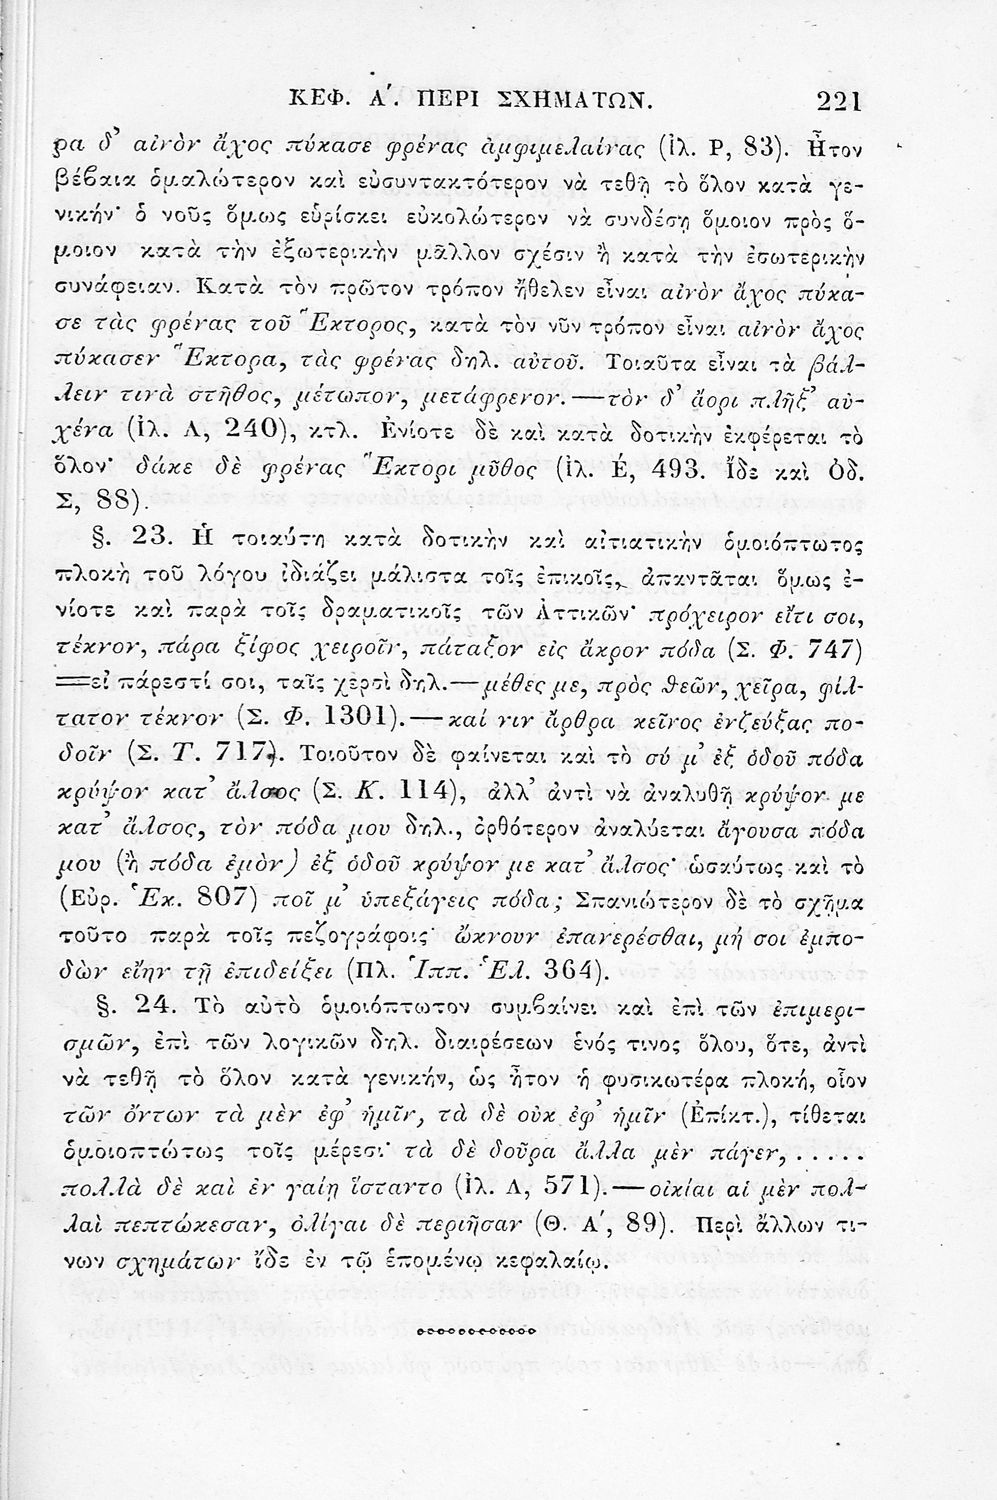 ΚΕΦ. Α΄. ΠΕΡΙ ΣΧΗΜΑΤΩΝ. 221
ρα δ’ αἰνὸν ἄχος πύκασε φρένας ἀμφιμελαίνας (Ἰλ. Ρ, 83). Ἦτον
βέβαια ὁμαλώτερον καὶ εὐσυντακτότερον νὰ τεθῇ τὸ ὅλον κατὰ γε-
νικήν· ὁ νοῦς ὅμως εὑρίσκει εὐκολώτερον νὰ συνδέσῃ ὅμοιον πρὸς ὅ-
μοιον κατὰ τὴν ἐξωτερικὴν μᾶλλον σχέσιν ἢ κατὰ τὴν ἐσωτερικὴν
συνάφειαν. Κατὰ τὸν πρῶτον τρόπον ἤθελεν εἶναι αἰνὸν ἄχος πύκα-
σε τὰς φρένας τοῦ Ἕκτορος, κατὰ τὸν νῦν τρόπον εἶναι αἰνὸν ἄχος
πύκασεν Ἕκτορα, τὰς φρένας δηλ. αὐτοῦ. Τοιαῦτα εἶναι τὰ βάλ-
λειν τινὰ στῆθος, μέτωπον, μετάφρενον.—τὸν δ’ ἄορι πλῆξ’ αὐ-
χένα (Ἰλ. Λ, 240), κτλ. Ἐνίοτε δὲ καὶ κατὰ δοτικὴν ἐκφέρεται τὸ
ὅλον· δάκε δὲ φρένας Ἕκτορι μῦθος (Ἰλ. Έ, 493. Ἴδε καὶ Ὀδ.
Σ, 88).
§. 23. Ἡ τοιαύτη κατὰ δοτικὴν καὶ αἰτιατικὴν ὁμοιόπτωτος
πλοκὴ τοῦ λόγου ἰδιάζει μάλιστα τοῖς ἐπικοῖς, ἀπαντᾶται ὅμως ἐ-
νίοτε καὶ παρὰ τοῖς δραματικοῖς τῶν Ἀττικῶν· πρόχειρον εἴτι σοι,
τέκνον, πάρα ξίφος χειροῖν, πάταξον εἰς ἄκρον πόδα (Σ. Φ. 747)
=εἰ πάρεστί σοι, ταῖς χερσὶ δηλ.—μέθες με, πρὸς θεῶν, χεῖρα, φίλ-
τατον τέκνον (Σ. Φ. 1301).—καί νιν ἄρθρα κεῖνος ἐνζεύξας πο-
δοῖν (Σ. Τ. 717). Τοιοῦτον δὲ φαίνεται καὶ τὸ σύ μ’ ἐξ ὁδοῦ πόδα
κρύψον κατ’ ἄλσος (Σ. Κ. 114), ἀλλ’ ἀντὶ νὰ ἀναλυθῇ κρύψον με
κατ’ ἄλσος, τὸν πόδα μου δηλ., ὀρθότερον ἀναλύεται ἄγουσα πόδα
μου (ἢ πόδα ἐμὸν) ἐξ ὁδοῦ κρύψον με κατ’ ἄλσος· ὡσαύτως καὶ τὸ
(Εὐρ. Ἑκ. 807) ποῖ μ’ ὑπεξάγεις πόδα; Σπανιώτερον δὲ τὸ σχῆμα
τοῦτο παρὰ τοῖς πεζογράφοις· ὤκνουν ἐπανερέσθαι, μή σοι ἐμπο-
δὼν εἴην τῇ ἐπιδείξει (Πλ. Ἱππ. Ἐλ. 364).
§. 24. Τὸ αὐτὸ ὁμοιόπτωτον συμβαίνει καὶ ἐπὶ τῶν ἐπιμερι-
σμῶν, ἐπὶ τῶν λογικῶν δηλ. διαιρέσεων ἑνός τινος ὅλου, ὅτε, ἀντὶ
νὰ τεθῇ τὸ ὅλον κατὰ γενικήν, ὡς ἦτον ἡ φυσικωτέρα πλοκή, οἷον
τῶν ὄντων τὰ μὲν ἐφ’ ἡμῖν, τὰ δὲ οὐκ ἐφ’ ἡμῖν (Ἐπίκτ.), τίθεται
ὁμοιοπτώτως τοῖς μέρεσι· τὰ δὲ δοῦρα ἄλλα μὲν πάγεν, . . . . .
πολλὰ δὲ καὶ ἐν γαίῃ ἵσταντο (Ἰλ. Λ, 571).—οἰκίαι αἱ μὲν πολ-
λαὶ πεπτώκεσαν, ὀλίγαι δὲ περιῆσαν (Θ. Α΄, 89). Περὶ ἄλλων τι-
νων σχημάτων ἴδε ἐν τῷ ἑπομένῳ κεφαλαίῳ.